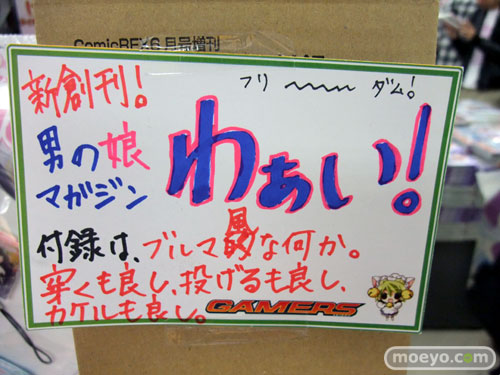 ComicREX 6月号増刊
新創刊!
フリ〜〜ダム!
男の娘
マガジン
わぁい!
付録は、ブルマ風な何か。
穿くも良し、投げるも良し、
カケルも良し。
GAMERS
moeyo.com